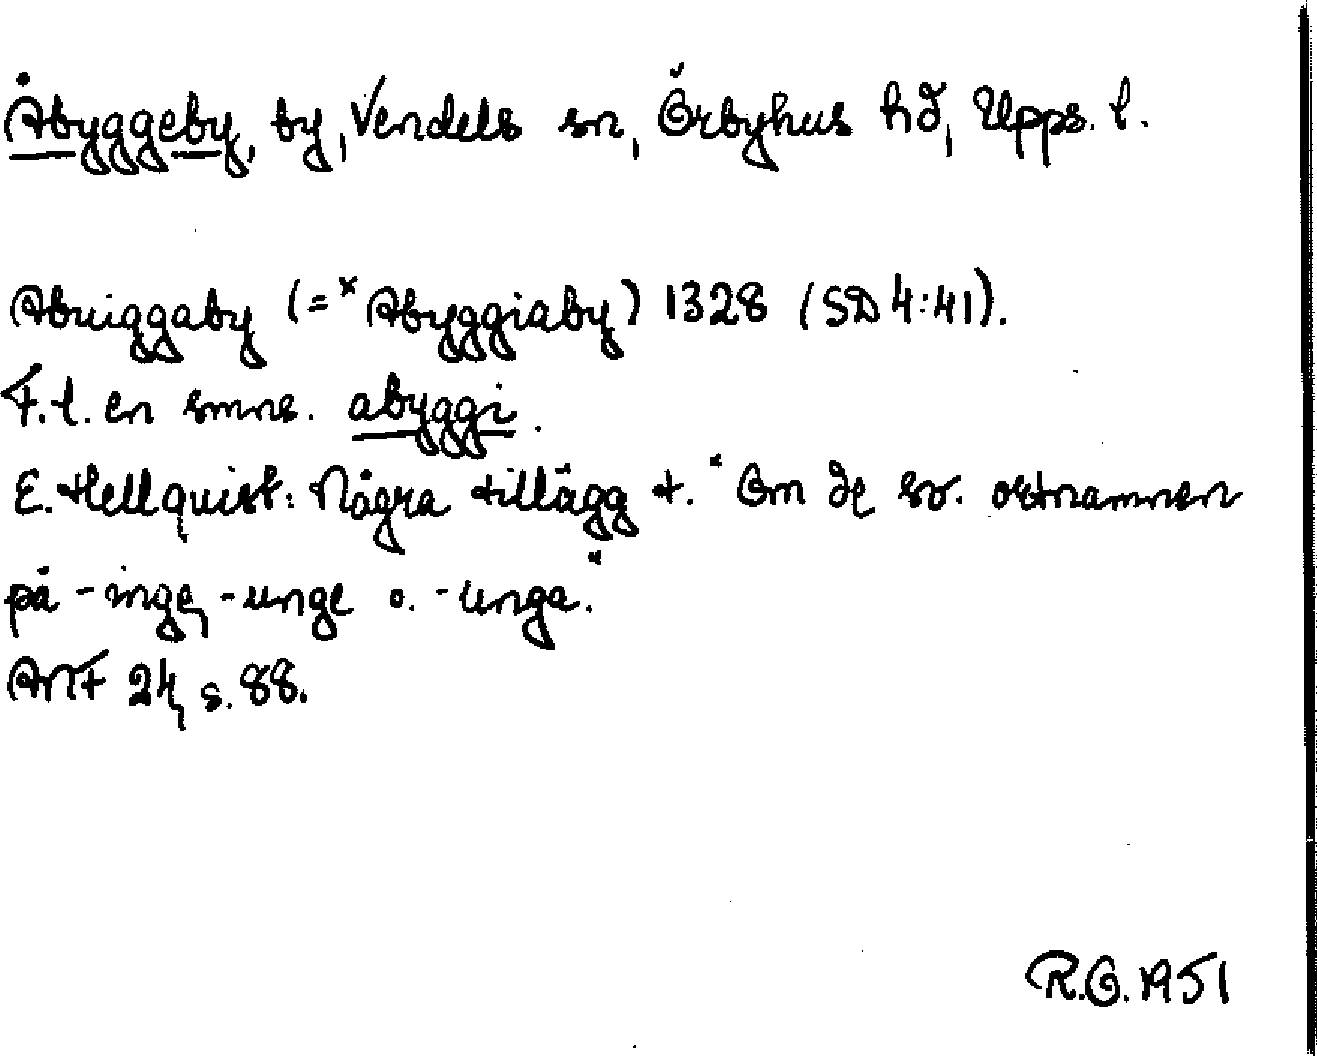 Åbyggeby, by, Vendels sn, Örbyhus hd, Upps. l.
Abuiggaby (=*Abyggiaby) 1328 (SD 4:41).
F.l. en smns. abyggi.
E. Hellquist: Några tillägg t. "Om de sv. ortnamnen
på -inge, -unge o. -unga."
ANF 24, s. 88.
R.O. 1951